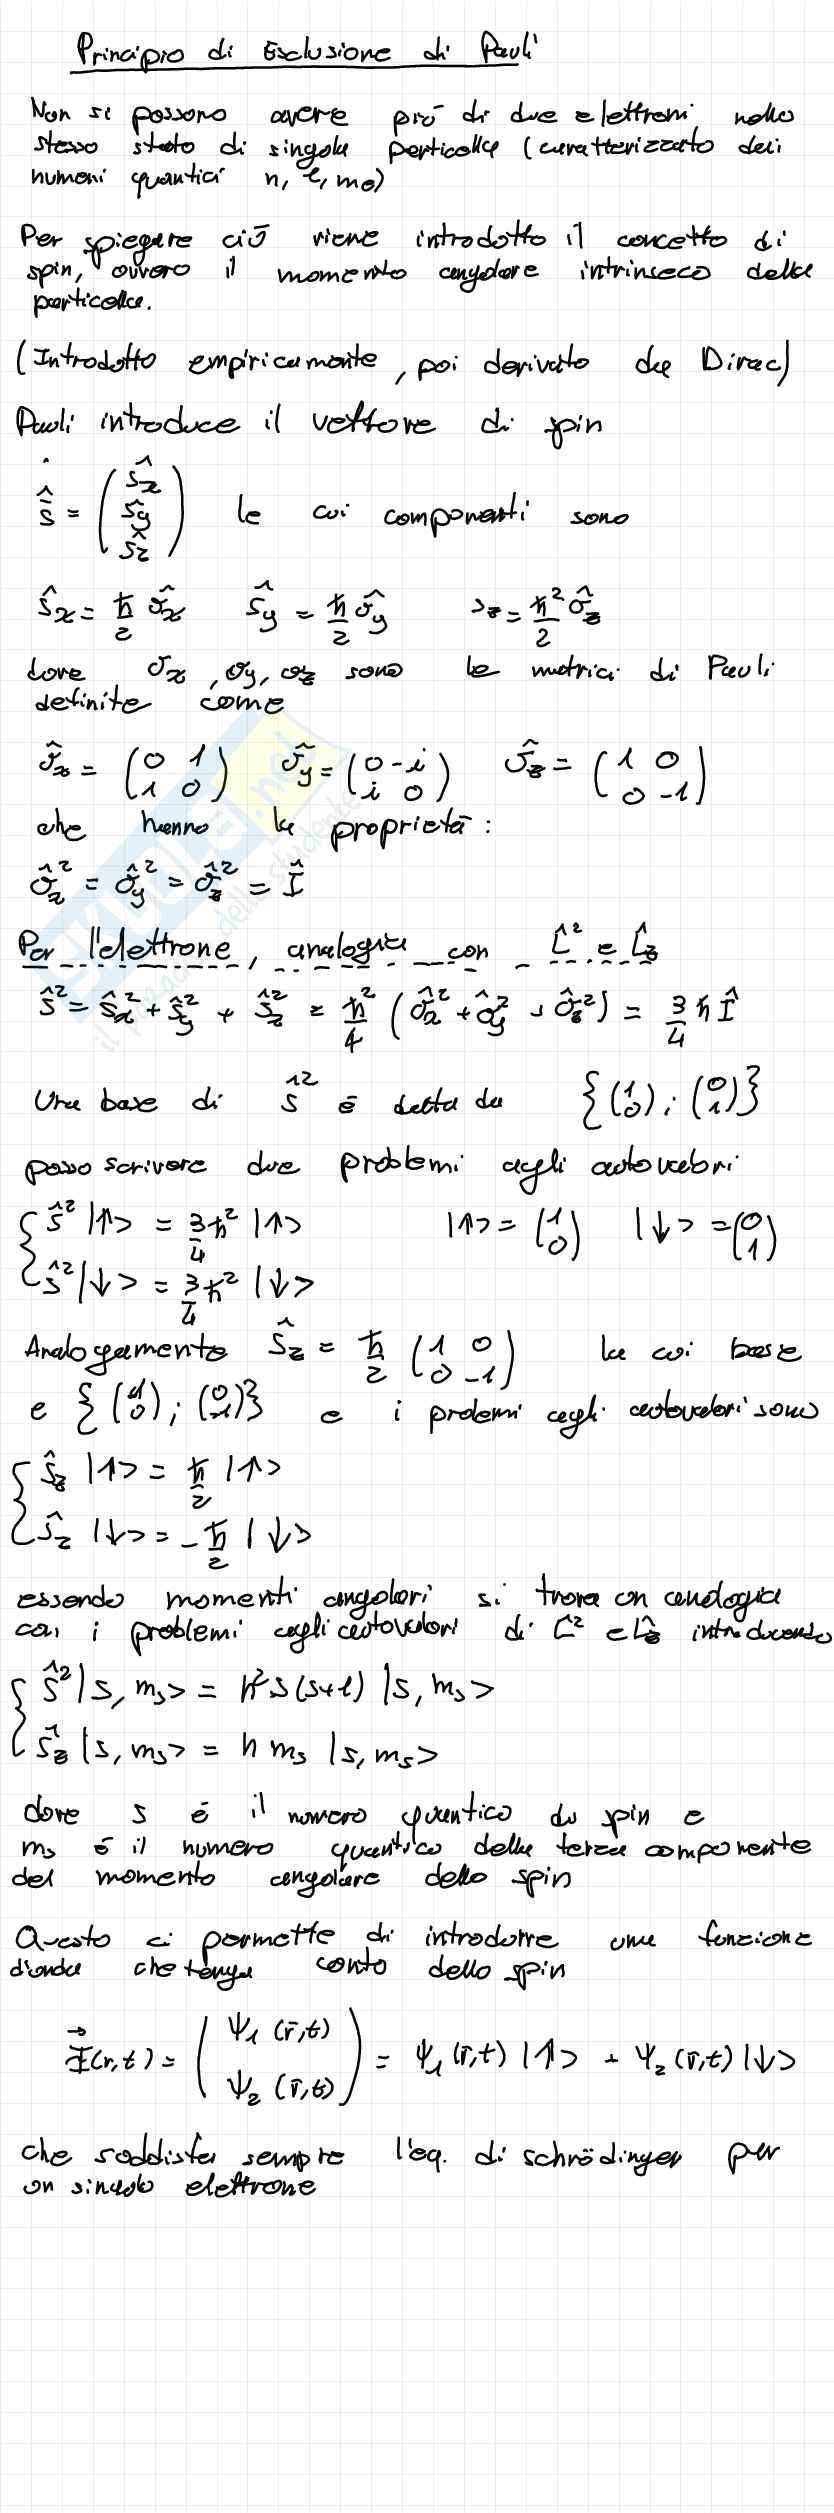 Principio di Esclusione di Pauli
Non si possono avere più di due elettroni nello
stesso stato di singola particella (caratterizzato dai
numeri quantici n, l, me)
Per spiegare ciò viene introdotto il concetto di
spin, ovvero il momento angolare intrinseco della
particella.
(Introdotto empiricamente, poi derivato da Dirac)
Pauli introduce il vettore di spin
ŝ = (ŝx ŝy ŝz) le cui componenti sono
ŝx = ħ/2 σ̂x ŝy = ħ/2 σ̂y sz = ħ²/2 σ̂z
dove σx, σy, σz sono le matrici di Pauli
definite come
σ̂x = (0 1 1 0) σ̂y = (0 -i i 0) σ̂z = (1 0 0 -1)
che hanno la proprietà :
σ̂x² = σ̂y² = σ̂z² = Î
Per l'elettrone, analogia con L̂² e L̂z
ŝ² = ŝx² + ŝy² + ŝz² = ħ²/4 (σ̂x² + σ̂y² + σ̂z²) = 3/4 ħ Î
Una base di ŝ² è detta da {(1 0) ; (0 1)}
posso scrivere due problemi agli autovalori
ŝ² |↑> = 3/4 ħ² |↑> |↑> = (1 0) |↓> = (0 1)
ŝ² |↓> = 3/4 ħ² |↓>
Analogamente ŝz = ħ/2 (1 0 0 -1) la cui base
e {(1 0) ; (0 -1)} e i prolemi agli autovalori sono
ŝz |↑> = ħ/2 |↑>
ŝz |↓> = -ħ/2 |↓>
essendo momenti angolari si trova un analogia
con i problemi agli autovalori di L̂² e L̂z introducendo
ŝ² |s, ms> = h² s(s+1) |s, ms>
ŝz |s, ms> = h ms |s, ms>
dove s è il numero quantico di spin e
ms è il numero quantico della terza componente
del momento angolare dello spin
Questo ci permette di introdurre una funzione
d'onda che tenga conto dello spin
Ψ(r, t) = (ψ1 (r̄,t) ψ2 (r̄,t)) = ψ1 (r̄,t) |↑> + ψ2 (r̄,t) |↓>
che soddisfa sempre l'eq. di schrödinger per
un singolo elettrone